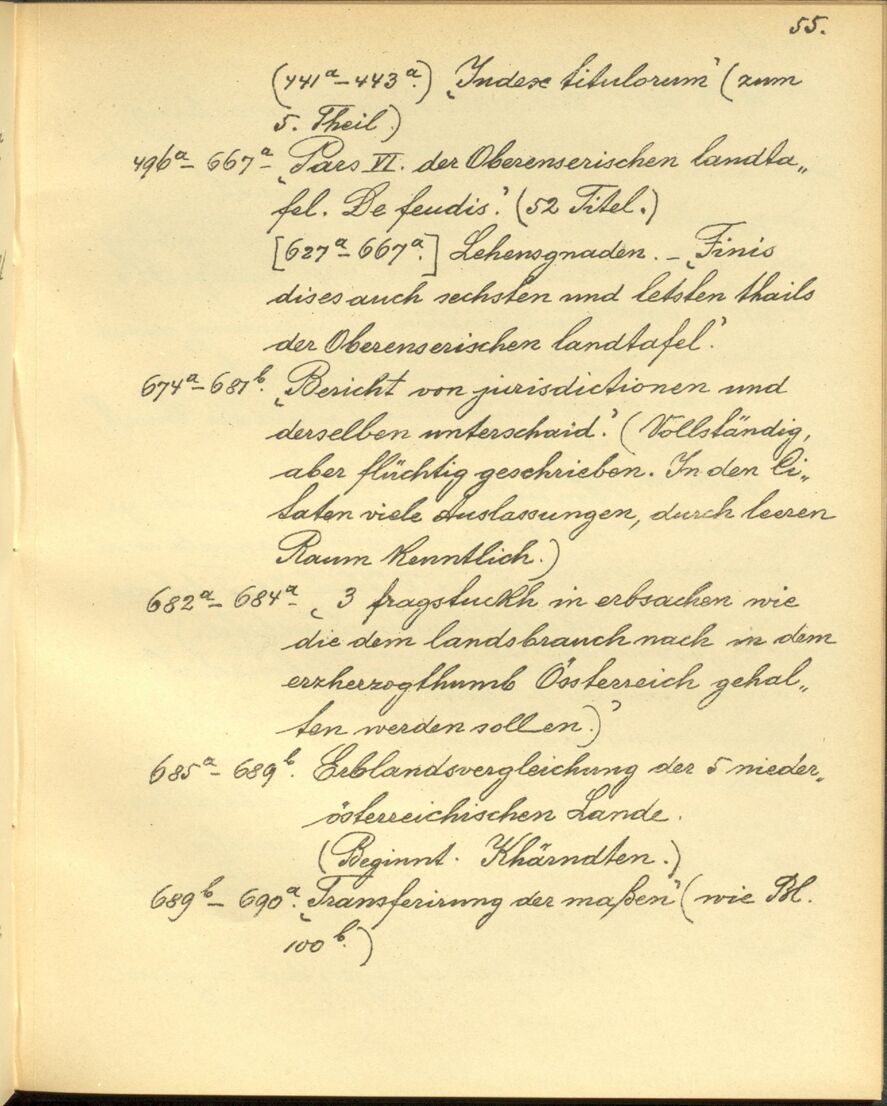 55.
(441a–443a.) „Index titulorum“ (zum
5. Theil)
496a–667a „Pars VI. der Oberenserischen landta„
fel. De feudis.“ (52 Titel.)
[627a–667a.] Lehensgnaden. – „Finis
dises auch sechsten und letsten thails
der Oberenserischen landtafel“.
674a–681b. „Bericht von jurisdictionen und
derselben unterschaid.“ (Vollständig,
aber flüchtig geschrieben. In den Ci„
taten viele Auslassungen, durch leeren
Raum kenntlich.)
682a–684a „3 fragstuckh in erbsachen wie
die dem landsbrauch nach in dem
erzherzogthumb Össterreich gehal„
ten werden sollen.)“
685a–689b. Erblandsvergleichung der 5 nieder„
österreichischen Lande.
(Beginnt. Khärndten.)
689b–690a. „Transferirung der maßen“ (wie Bl.
100b.)